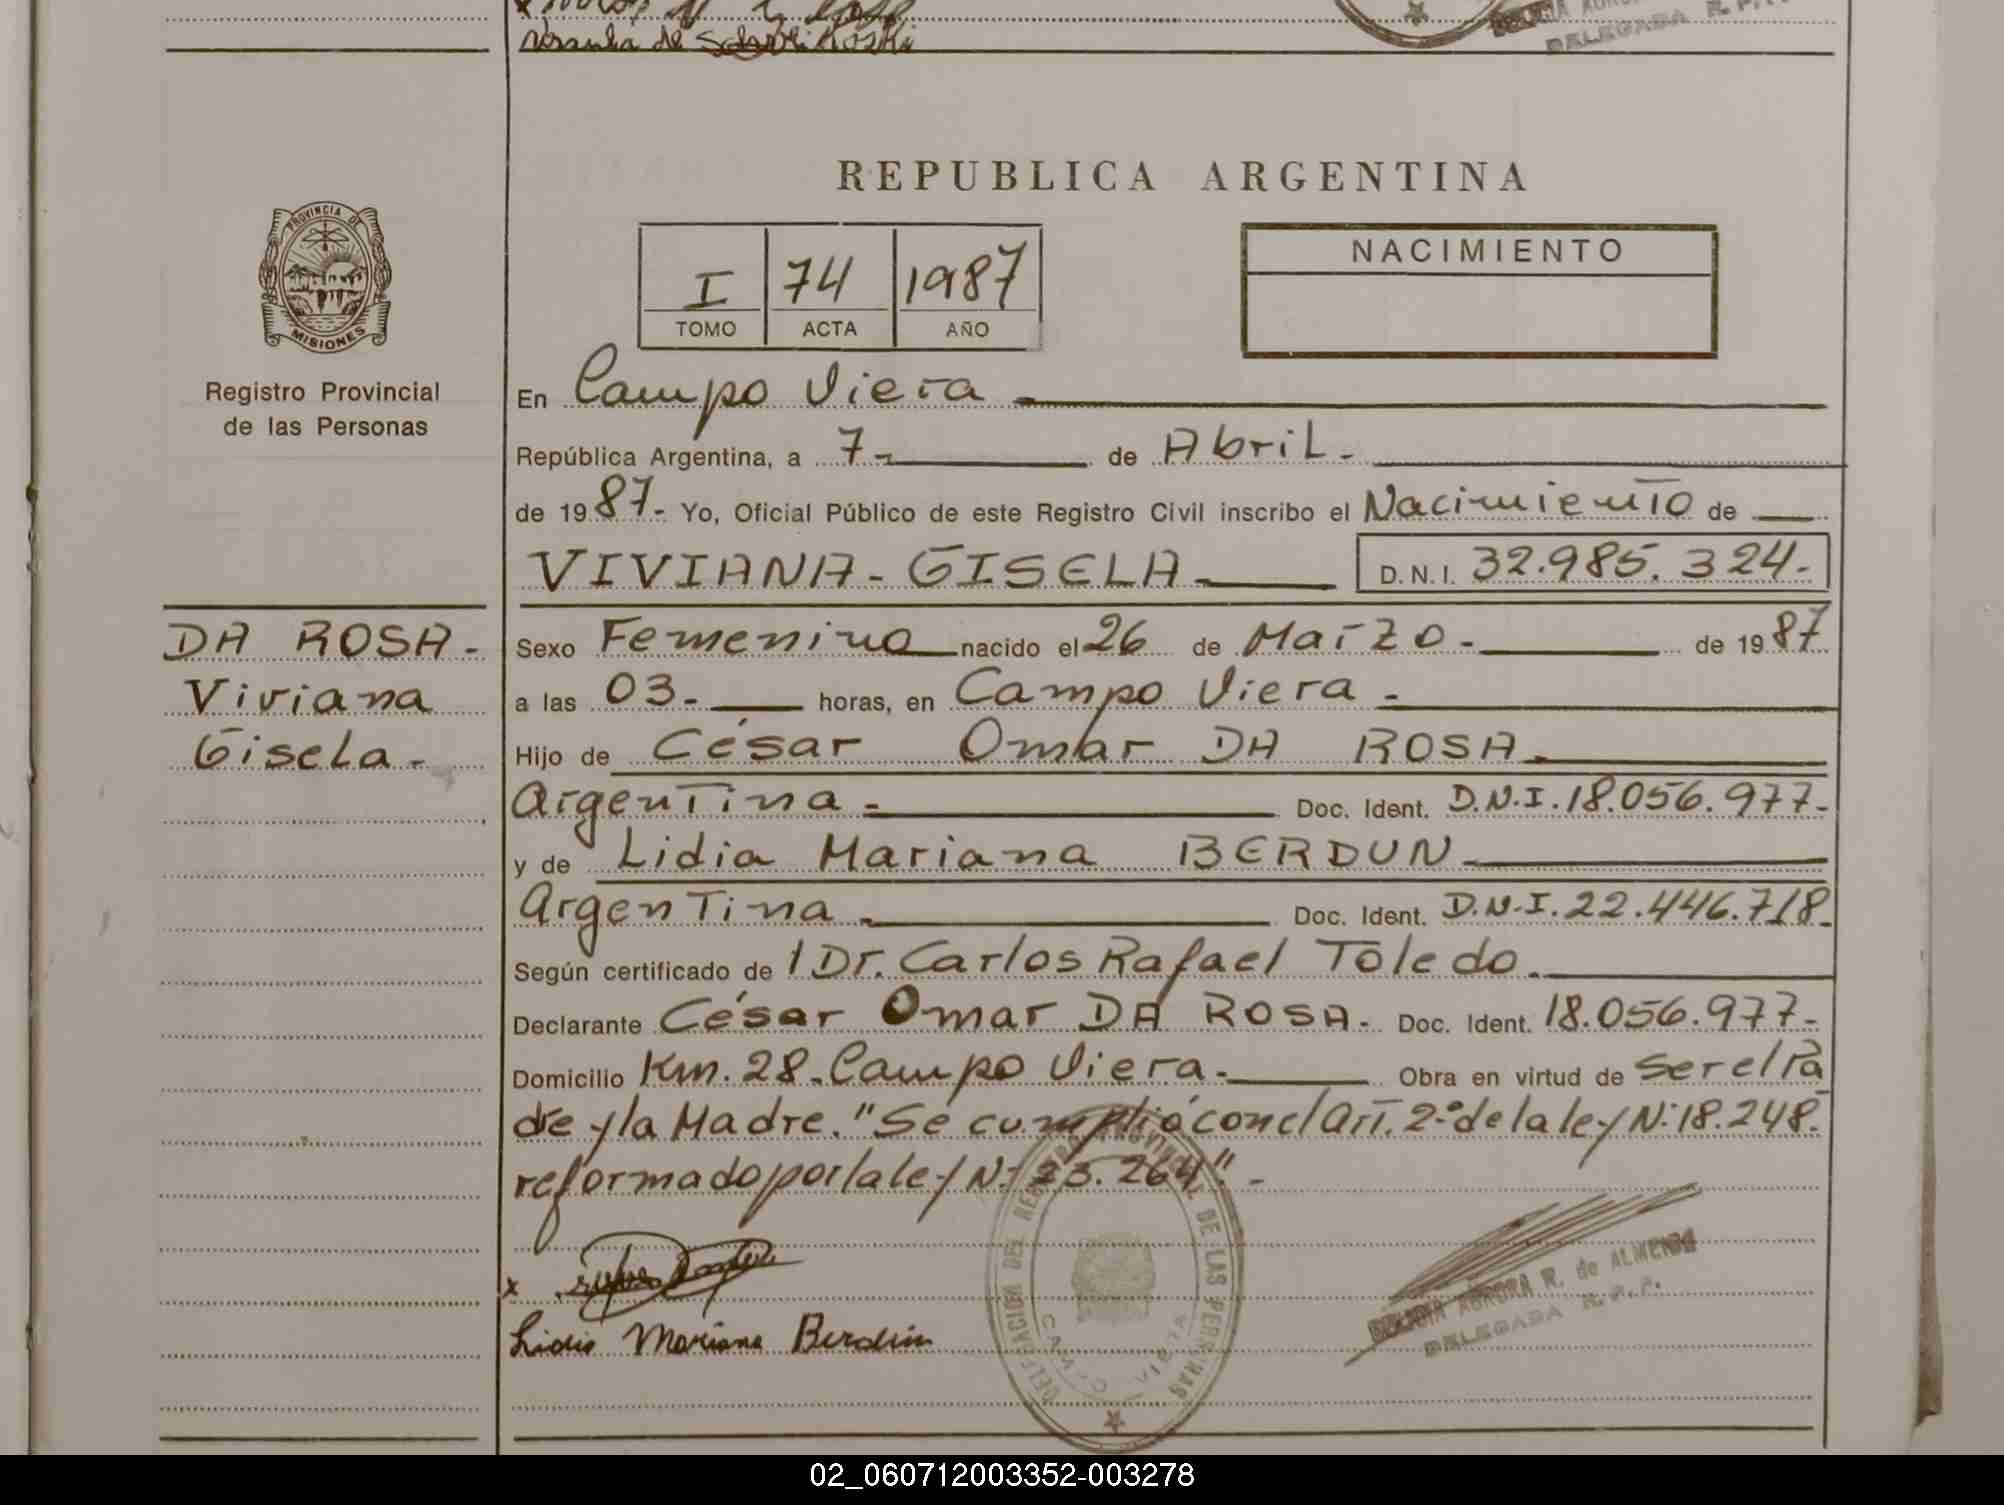 REPUBLICA ARGENTINA
PROVINCIA DE
MISIONES
Registro Provincial
de las Personas
I 74 1987
TOMO ACTA AÑO
NACIMIENTO
En Campo Viera
República Argentina, a 7- de Abril.
de 19 87- Yo, Oficial Público de este Registro Civil inscribo el Nacimiento de
VIVIANA - GISELA D.N.I. 32.985.324-
DA ROSA-
Viviana
Gisela-
Sexo Femenino nacido el 26 de Marzo- de 19 87
a las 03- horas, en Campo Viera-
Hijo de César Omar DA ROSA-
Argentina- Doc. Ident. D.N.I. 18.056.977-
y de Lidia Mariana BERDUN-
Argentina- Doc. Ident. D.N.I. 22.446.718-
Según certificado de / Dr. Carlos Rafael Toledo.
Declarante César Omar DA ROSA- Doc. Ident. 18.056.977-
Domicilio Km. 28- Campo Viera- Obra en virtud de ser el Pa
dre y la Madre. "Se cumplió con el Art. 2º de la ley Nº 18.248-
reformado por la ley Nº 23.264"-
x
Lidia Mariana Berdun
DELEGACION DEL REGISTRO PROVINCIAL DE LAS PERSONAS
CAMPO VIERA
AURORA R. de ALMEIDA
DELEGADA R.P.P.
02_060712003352-003278